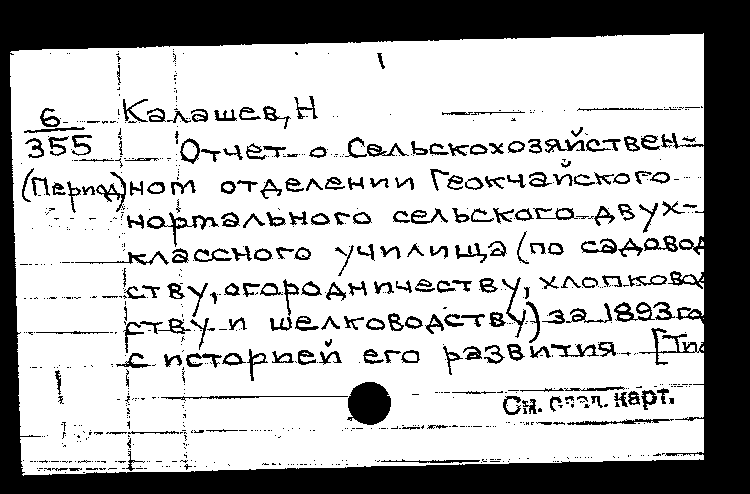 6 Калашев, Н
355 Отчет о Сельскохозяйствен-
(Период) ном отделении Геокчайского
нормального сельского двух-
классного училища (по садовод
ству, огородничеству, хлопковод
ству и шелководству) за 1893 го
с историей его развития [Тип
См. след. карт.